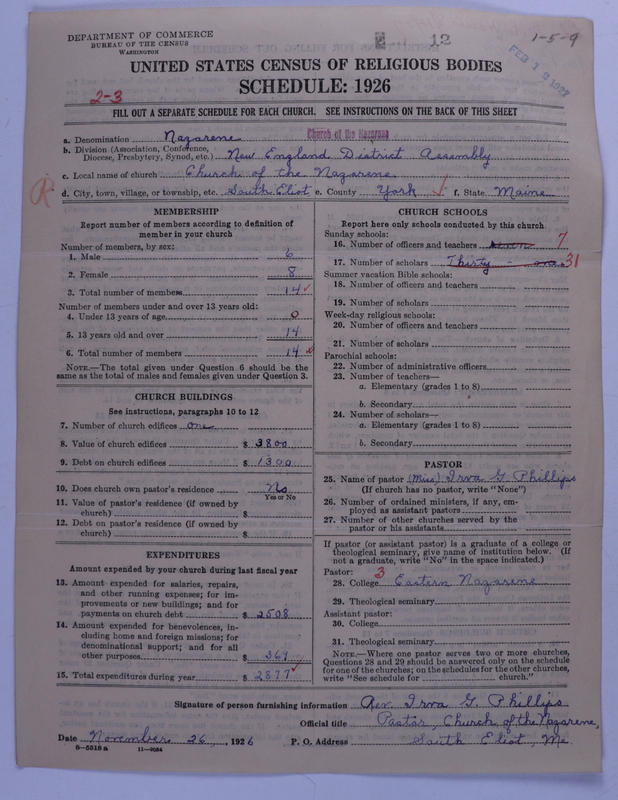 DEPARTMENT OF COMMERCE
BUREAU OF THE CENSUS
WASHINGTON
12
1-5-9
FEB 19 1927
UNITED STATES CENSUS OF RELIGIOUS BODIES
SCHEDULE: 1926
2-3
FILL OUT A SEPARATE SCHEDULE FOR EACH CHURCH. SEE INSTRUCTIONS ON THE BACK OF THIS SHEET
a. Denomination Nazarene Church of the Nazarene
b. Division (Association, Conference, Diocese, Presbytery, Synod, etc.) New England District Assembly
c. Local name of church Church of the Nazarene
d. City, town, village, or township, etc. South Eliot e. County York f. State Maine
MEMBERSHIP
Report number of members according to definition of
member in your church
Number of members, by sex:
1. Male 6
2. Female 8
3. Total number of members 14
Number of members under and over 13 years old:
4. Under 13 years of age 0
5. 13 years old and over 14
6. Total number of members 14
NOTE.—The total given under Question 6 should be the
same as the total of males and females given under Question 3.
CHURCH BUILDINGS
See instructions, paragraphs 10 to 12
7. Number of church edifices one
8. Value of church edifices $ 3800
9. Debt on church edifices $ 1300
10. Does church own pastor's residence No
Yes or No
11. Value of pastor's residence (if owned by
church) $
12. Debt on pastor's residence (if owned by
church) $
EXPENDITURES
Amount expended by your church during last fiscal year
13. Amount expended for salaries, repairs,
and other running expenses; for im-
provements or new buildings; and for
payments on church debt $ 2508
14. Amount expended for benevolences, in-
cluding home and foreign missions; for
denominational support; and for all
other purposes $ 369
15. Total expenditures during year $ 2877
CHURCH SCHOOLS
Report here only schools conducted by this church
Sunday schools:
16. Number of officers and teachers seven 7
17. Number of scholars Thirty-one 31
Summer vacation Bible schools:
18. Number of officers and teachers
19. Number of scholars
Week-day religious schools:
20. Number of officers and teachers
21. Number of scholars
Parochial schools:
22. Number of administrative officers
23. Number of teachers—
a. Elementary (grades 1 to 8)
b. Secondary
24. Number of scholars—
a. Elementary (grades 1 to 8)
b. Secondary
PASTOR
25. Name of pastor (Miss) Irva G. Phillips
(If church has no pastor, write "None")
26. Number of ordained ministers, if any, em-
ployed as assistant pastors
27. Number of other churches served by the
pastor or his assistants
If pastor (or assistant pastor) is a graduate of a college or
theological seminary, give name of institution below. (If
not a graduate, write "No" in the space indicated.)
Pastor: 3
28. College Eastern Nazarene
29. Theological seminary
Assistant pastor:
30. College
31. Theological seminary
NOTE.—Where one pastor serves two or more churches,
Questions 28 and 29 should be answered only on the schedule
for one of the churches; on the schedules for the other churches,
write "See schedule for church."
Signature of person furnishing information Rev. Irva G. Phillips
Official title Pastor, Church of the Nazarene,
Date November 26, 1926 P. O. Address South Eliot, Me
8-5318a 11-9084